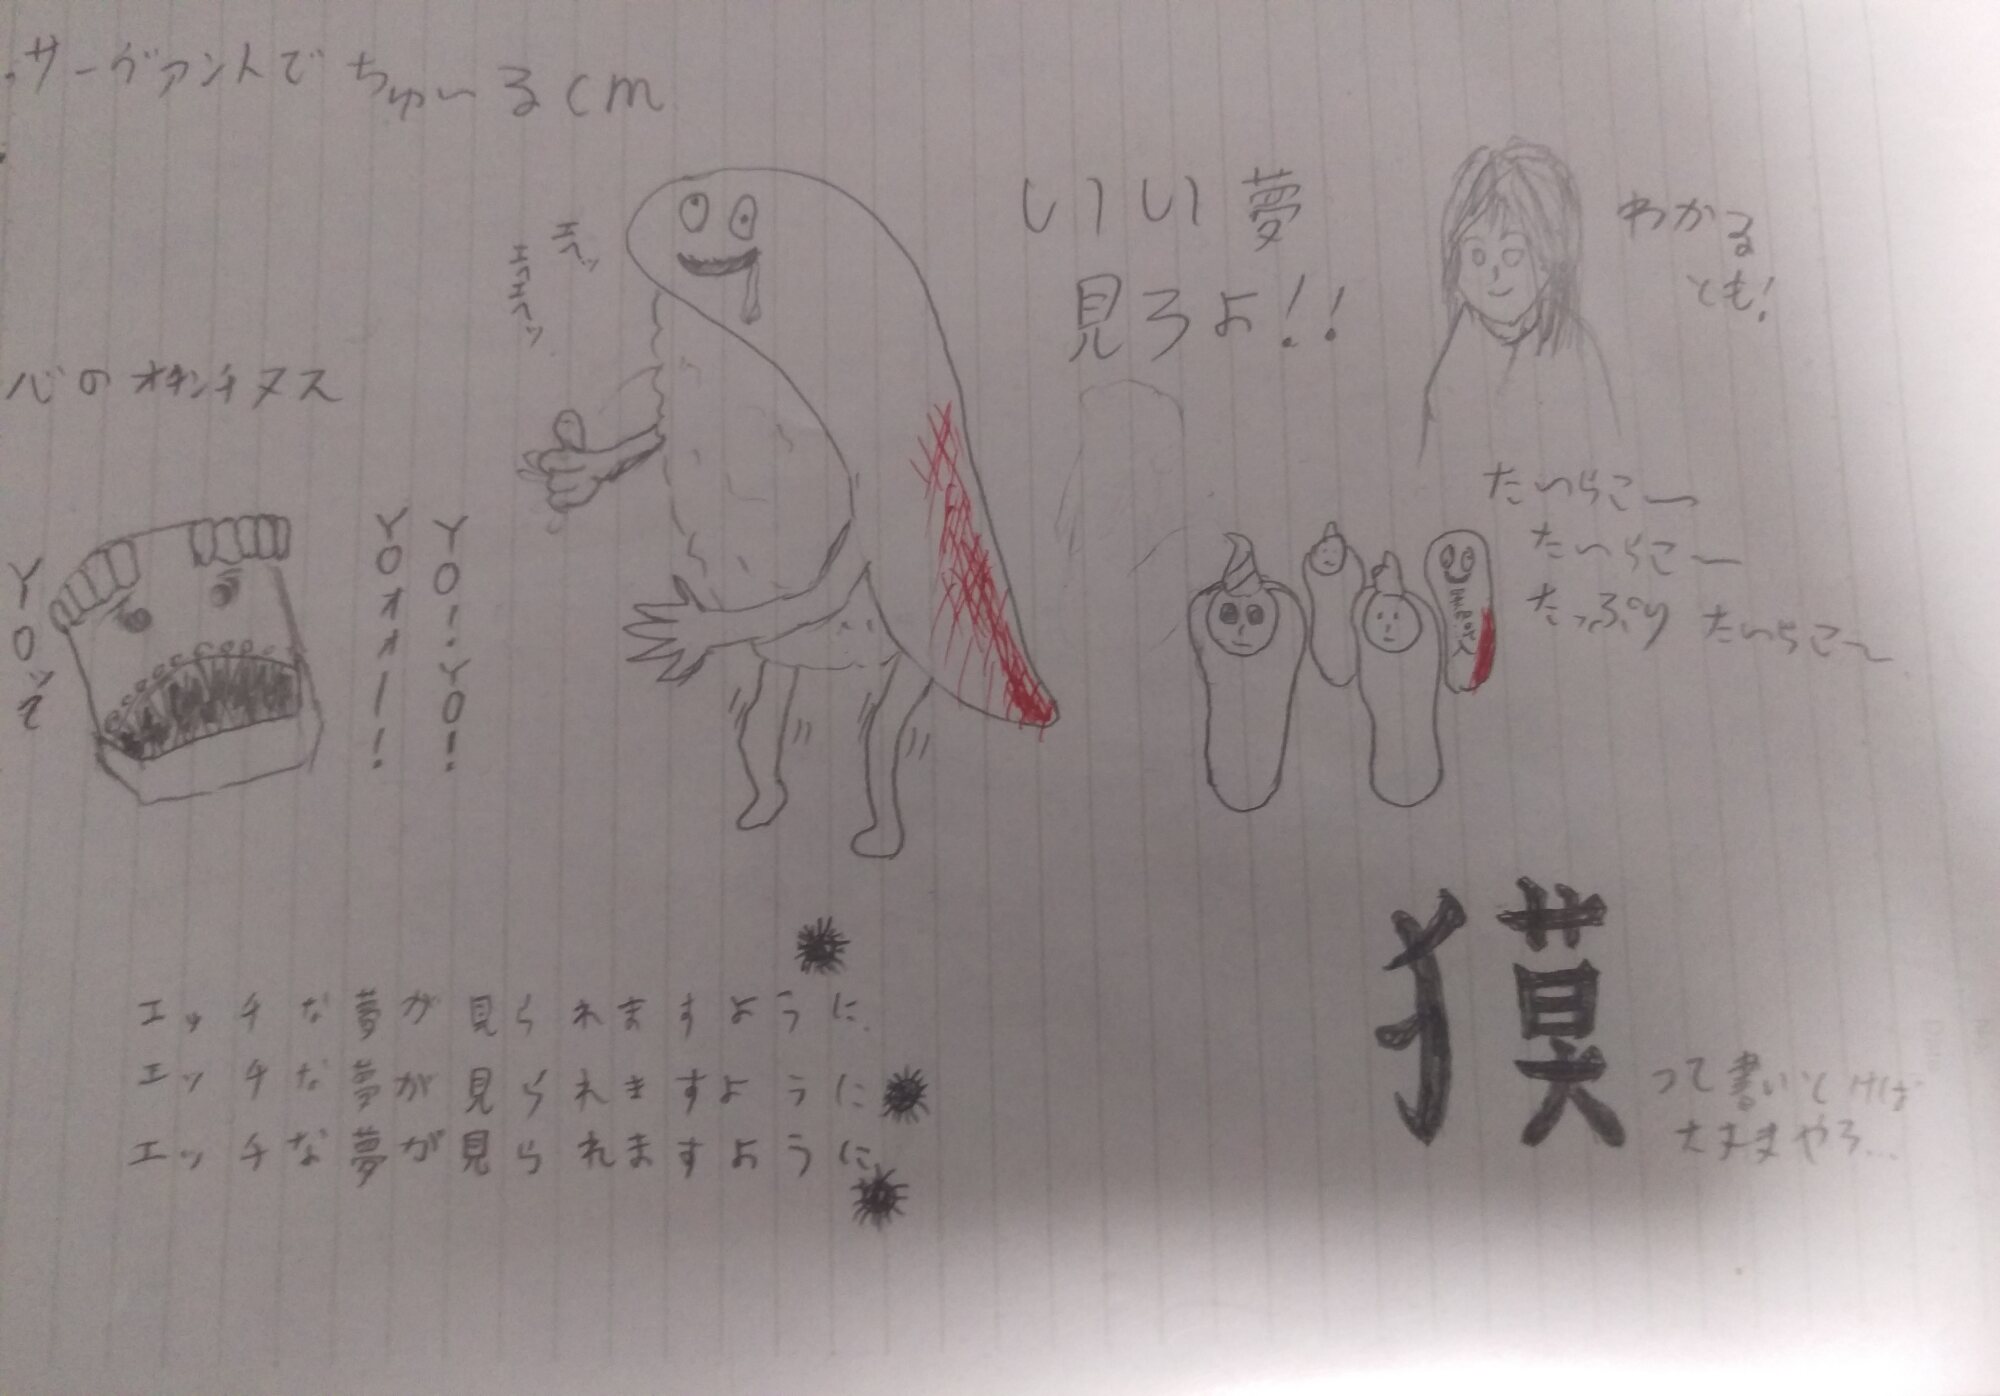 ・サーヴァントでちゅ〜るcm
エヘッ
エヘエヘッ
いい夢
見ろよ!!
わかる
とも!
心のオキンチヌス
YO!YO!
YOォォー!
YOッて
たいらこ〜
たいらこ〜
たっぷり たいらこ〜
エッチな夢が見られますように
エッチな夢が見られますように
エッチな夢が見られますように
獏
って書いとけば
大丈夫やろ…